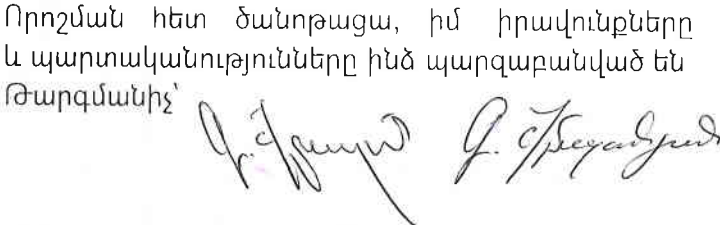 Որոշման հետ ծանոթացա, իմ իրավունքները
և պարտականությունները ինձ պարզաբանված են
Թարգմանիչ՝